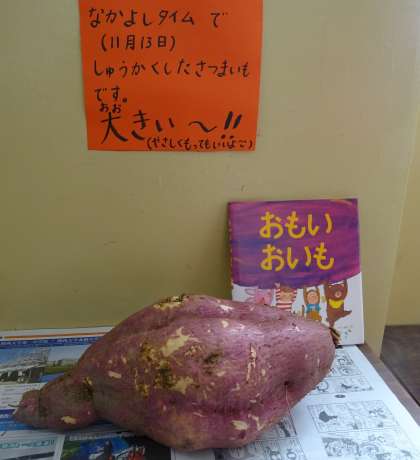 なかよしタイムで
(11月13日)
しゅうかくしたさつまいも
です。
おお
大きい〜!!
(やさしくもってもいいよ〜)
おもい
おいも